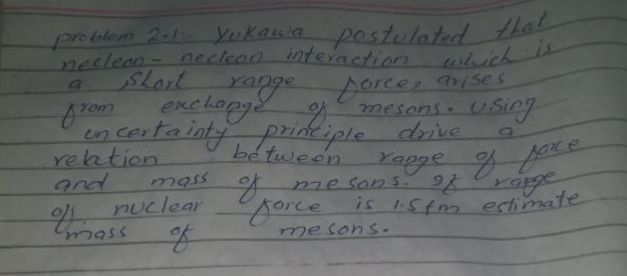 problem 2-1. Yukawa postulated that
necleon - necleon interaction which is
a short range force, arises
from exchange of mesons. using
uncertainty principle drive a
relation between range of force
and mass of mesons. If range
of nuclear force is 1.5 fm estimate
mass of mesons.